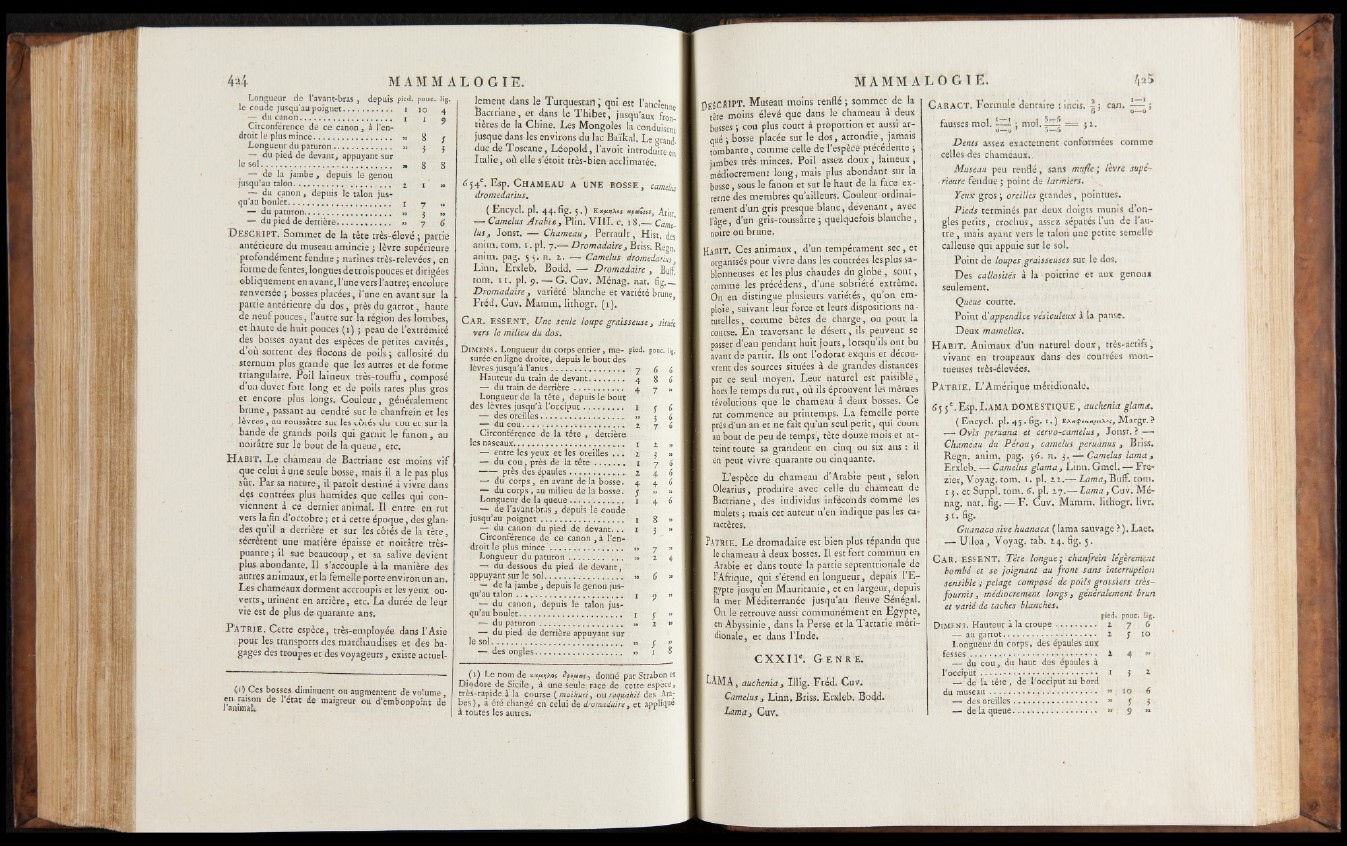 424 MAMMALOGIE.
Longueur de l'avant-bras, depuis pied. pouc. lig.
le coude jusqu'au poignet........... 1 10 4
— du canon.................... 1 1 9
Circonférence de ce canon, à l'en-
droit le plus mince................ » 8 5
Longueur du paturon............. » 3 3
— du pied de devant, appuyant sur
le sol.......................... » 8 8
— de la jambe, depuis le genou
jusqu'au talon.................... 2 1 »
— du canon, depuis le talon jus-
qu'au boulet..................... 1 7 »
— du paturon................... » 3 »
— du pied de derrière............ » 7 6
DESCRIPT. Sommet de la tête très-élevé; partie
antérieure du museau amincie; lèvre supérieure
profondément fendue; narines très-relevées, en
forme de fentes, longues de trois pouces et dirigées
obliquement en avant, l'une vers l'autre; encolure
renversée; bosses placées, l'une en avant sur la
partie antérieure du dos, près du garrot, haute
de neuf pouces, l'autre sur la région des lombes,
et haute de huit pouces (1); peau de l'extrémité
des bosses ayant des espèces de petites cavités,
d'où sortent des flocons de poils; callosité du
sternum plus grande que les autres et de forme
triangulaire. Poil laineux très-touffu, composé
d'un duvet fort long et de poils rares plus gros
et encore plus longs. Couleur, généralement
brune, passant au cendré sur le chanfrein et les
lèvres, au roussâtre sur les côtés du cou et sur la
bande de grands poils qui garnit le fanon, au
noirâtre sur le bout de la queue, etc.
HABIT. Le chameau de Bactriane est moins vif
que celui à une seule bosse, mais il a le pas plus
sûr. Par sa nature, il paroît destiné à vivre dans
des contrées plus humides que celles qui con-
viennent à ce dernier animal. Il entre en rut
vers la fin d'octobre; et à cette époque, des glan-
des qu'il a derrière et sur les côtés de la tête,
sécrètent une matière épaisse et noirâtre très-
puante; il sue beaucoup, et sa salive devient
plus abondante. Il s'accouple à la manière des
autres animaux, et la femelle porte environ un an.
Les chameaux dorment accroupis et les yeux ou-
verts, urinent en arrière, etc. La durée de leur
vie est de plus de quarante ans.
PATRIE. Cette espèce, très-employée dans l'Asie
pour les transports des marchandises et des ba-
gages des troupes et des voyageurs, existe actuel-
(1) Ces bosses diminuent ou augmentent de volume,
en raison de l'état de maigreur ou d'embonpoint de
l'animal.
lement dans le Turquestan, qui est l'ancienne
Bactriane, et dans le Thibet, jusqu'aux fron-
tières de la Chine. Les Mongoles la conduisent
jusque dans les environs du lac Baïkal. Le grand-
duc de Toscane, Léopold, l'avoit introduite en
Italie, où elle s'étoit très-bien acclimatée.
654e. Esp. CHAMEAU A UNE BOSSE, camelus
dromedarius.
(Encycl. pl. 44. fig. 5.) Arist.
— Camelus Arabiæ, Plin. VIII. c. 18.— Came-
lus, Jonst. — Chameau, Perrault, Hist. des
anim. tom. 1. pl. 7.— Dromadaire, Briss. Regn.
anim. pag. 55. n. 2. — Camelus dromedarius,
Linn. Erxleb. Bodd. — Dromadaire, Buff.
tom. 11. pl. 9. — G. Cuv. Ménag. nat. fig.—
Dromadaire, variété blanche et variété brune,
Fréd. Cuv. Mamm. lithogr. (1).
CAR. ESSENT. Une seule loupe graisseuse, située
vers le milieu du dos.
DIMENS. Longueur du corps entier, me- pied. pouc. lig.
surée en ligne droite, depuis le bout des
lèvres jusqu'à l'anus................. 7 6 6
Hauteur du train de devant......... 4 8 6
— du train de derrière............ 4 7 »
Longueur de la tête, depuis le bout
des lèvres jusqu'à l'occiput......... 1 5 6
— des oreilles.................. » 3 6
— du cou...................... 2 7 6
Circonférence de la tête, derrière
les naseaux...................... 1 2 »
— entre les yeux et les oreilles... 2 3 »
— du cou, près de la tête........ 1 7 6
—— près des épaules............ 2 4 6
— du corps, en avant de la bosse. 4 4 6
— du corps, au milieu de la bosse. 5 » »
Longueur de la queue............. 1 4 6
— de l'avant-bras, depuis le coude
jusqu'au poignet.................. 1 8 »
— du canon du pied de devant... 1 3 »
Circonférence de ce canon, à l'en-
droit le plus mince................ » 7 »
Longueur du paturon.............. » 2 4
— du dessous du pied de devant,
appuyant sur le sol................ » 6 »
— de la jambe, depuis le genou jus-
qu'au talon...................... 1 9 »
— du canon, depuis le talon jus-
qu'au boulet..................... 1 5 »
— du paturon................... » 2 »
— du pied de derrière appuyant sur
le sol.......................... » 5 »
— des ongles................... » 1 8
(1) Le nom de donné par Strabon et
Diodore de Sicile, à une seule race de cette espèce,
très-rapide à la course (maihari, ou raguahil des Ara-
bes), a été changé en celui de dromadaire, et appliqué
à toutes les autres.
MAMMALOGIE. 425
DESCRIPT. Museau moins renflé; sommet de la
tête moins élevé que dans le chameau à deux
bosses; cou plus court à proportion et aussi ar-
qué; bosse placée sur le dos, arrondie, jamais
tombante, comme celle de l'espèce précédente;
jambes très-minces. Poil assez doux, laineux,
médiocrement long, mais plus abondant sur la
bosse, sous le fanon et sur le haut de la face ex-
terne des membres qu'ailleurs. Couleur ordinai-
rement d'un gris presque blanc, devenant, avec
l'âge, d'un gris-roussâtre; quelquefois blanche,
noire ou brune.
HABIT. Ces animaux, d'un tempérament sec, et
organisés pour vivre dans les contrées les plus sa-
blonneuses et les plus chaudes du globe, sont,
comme les précédens, d'une sobriété extrême.
On en distingue plusieurs variétés, qu'on em-
ploie, suivant leur force et leurs dispositions na-
turelles, comme bêtes de charge, ou pour la
course. En traversant le désert, ils peuvent se
passer d'eau pendant huit jours, lorsqu'ils ont bu
avant de partir. Ils ont l'odorat exquis et décou-
vrent des sources situées à de grandes distances
par ce seul moyen. Leur naturel est paisible,
hors le temps du rut, où ils éprouvent les mêmes
révolutions que le chameau à deux bosses. Ce
rut commence au printemps. La femelle porte
près d'un an et ne fait qu'un seul petit, qui court
au bout de peu de temps, tète douze mois et at-
teint toute sa grandeur en cinq ou six ans: il
en peut vivre quarante ou cinquante.
L'espèce du chameau d'Arabie peut, selon
Olearius, produire avec celle du chameau de
Bactriane, des individus inféconds comme les
mulets; mais cet auteur n'en indique pas les ca-
ractères.
PATRIE. Le dromadaire est bien plus répandu que
le chameau à deux bosses. Il est fort commun en
Arabie et dans toute la partie septentrionale de
l'Afrique, qui s'étend en longueur, depuis l'E-
gypte jusqu'en Mauritanie, et en largeur, depuis
la mer Méditerranée jusqu'au fleuve Sénégal.
On le retrouve aussi communément en Egypte,
en Abyssinie, dans la Perse et la Tartarie méri-
dionale, et dans l'Inde.
CXXIIe. GENRE.
LAMA, auchenia, Illig. Fréd. Cuv.
Camelus, Linn. Briss. Erxleb. Bodd.
Lama, Cuv.
CARACT. Formule dentaire: incis. 2/6; can. 1—1/0—0;
fausses mol. 1—1/0—0; mol. 5—5/5—5 = 32.
Dents assez exactement conformées comme
celles des chameaux.
Museau peu renflé, sans mufle; lèvre supé-
rieure fendue; point de larmiers.
Yeux gros; oreilles grandes, pointues.
Pieds terminés par deux doigts munis d'on-
gles petits, crochus, assez séparés l'un de l'au-
tre, mais ayant vers le talon une petite semelle
calleuse qui appuie sur le sol.
Point de loupes graisseuses sur le dos.
Des callosités à la poitrine et aux genoux
seulement.
Queue courte.
Point d'appendice vésiculeux à la panse.
Deux mamelles.
HABIT. Animaux d'un naturel doux, très-actifs,
vivant en troupeaux dans des contrées mon-
tueuses très-élevées.
PATRIE. L'Amérique méridionale.
655e. Esp. LAMA DOMESTIQUE, auchenia glama.
(Encycl. pl. 45. fig. 1.) Margr.?
— Ovis peruana et cervo-camelus, Jonst.? —
Chameau du Pérou, camelus peruanus, Briss.
Regn. anim. pag. 56. n. 3. — Camelus lama,
Erxleb. — Camelus glama, Linn. Gmel. — Fre-
zier, Voyag. tom. 1. pl. 22.— Lama, Buff. tom.
13. et Suppl. tom. 6. pl. 27.— Lama, Cuv. Mé-
nag. nat. fig. — F. Cuv. Mamm. lithogr. livr.
31. fig.
Guanaco sive huanaca (lama sauvage?). Laet.
— Ulloa, Voyag. tab. 24. fig. 5.
CAR. ESSENT. Tête longue; chanfrein légèrement
bombé et se joignant au front sans interruption
sensible; pelage composé de poils grossiers très-
fournis, médiocrement longs, généralement brun
et varié de taches blanches.
pied. pouc. lig.
DIMENS. Hauteur à la croupe......... 2 7 6
— au garrot.................... 2 5 10
Longueur du corps, des épaules aux
fesses.......................... 2 4 »
— du cou, du haut des épaules à
l'occiput........................ 1 3 2
— de la tête, de l'occiput au bord
du museau...................... » 10 6
— des oreilles.................. » 5 5
— de la queue.................. » 9 »